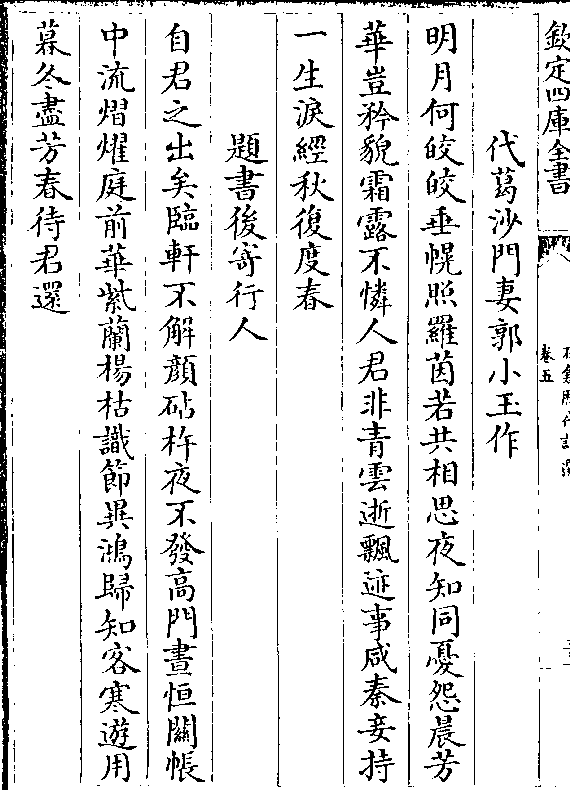 欽定四庫全書
卷五
代葛沙門妻郭小玉作
明月何皎皎垂幌照羅茵若共相思夜知同憂怨晨芳
華豈矜貌霜露不憐人君非青雲逝飄迹事咸秦妾持
一生淚經秋復度春
題書後寄行人
自君之出矣臨軒不解顔砧杵夜不發高門晝恒關帳
中流熠燿庭前華紫蘭楊枯識節異鴻歸知客寒遊用
暮冬盡芳春待君還